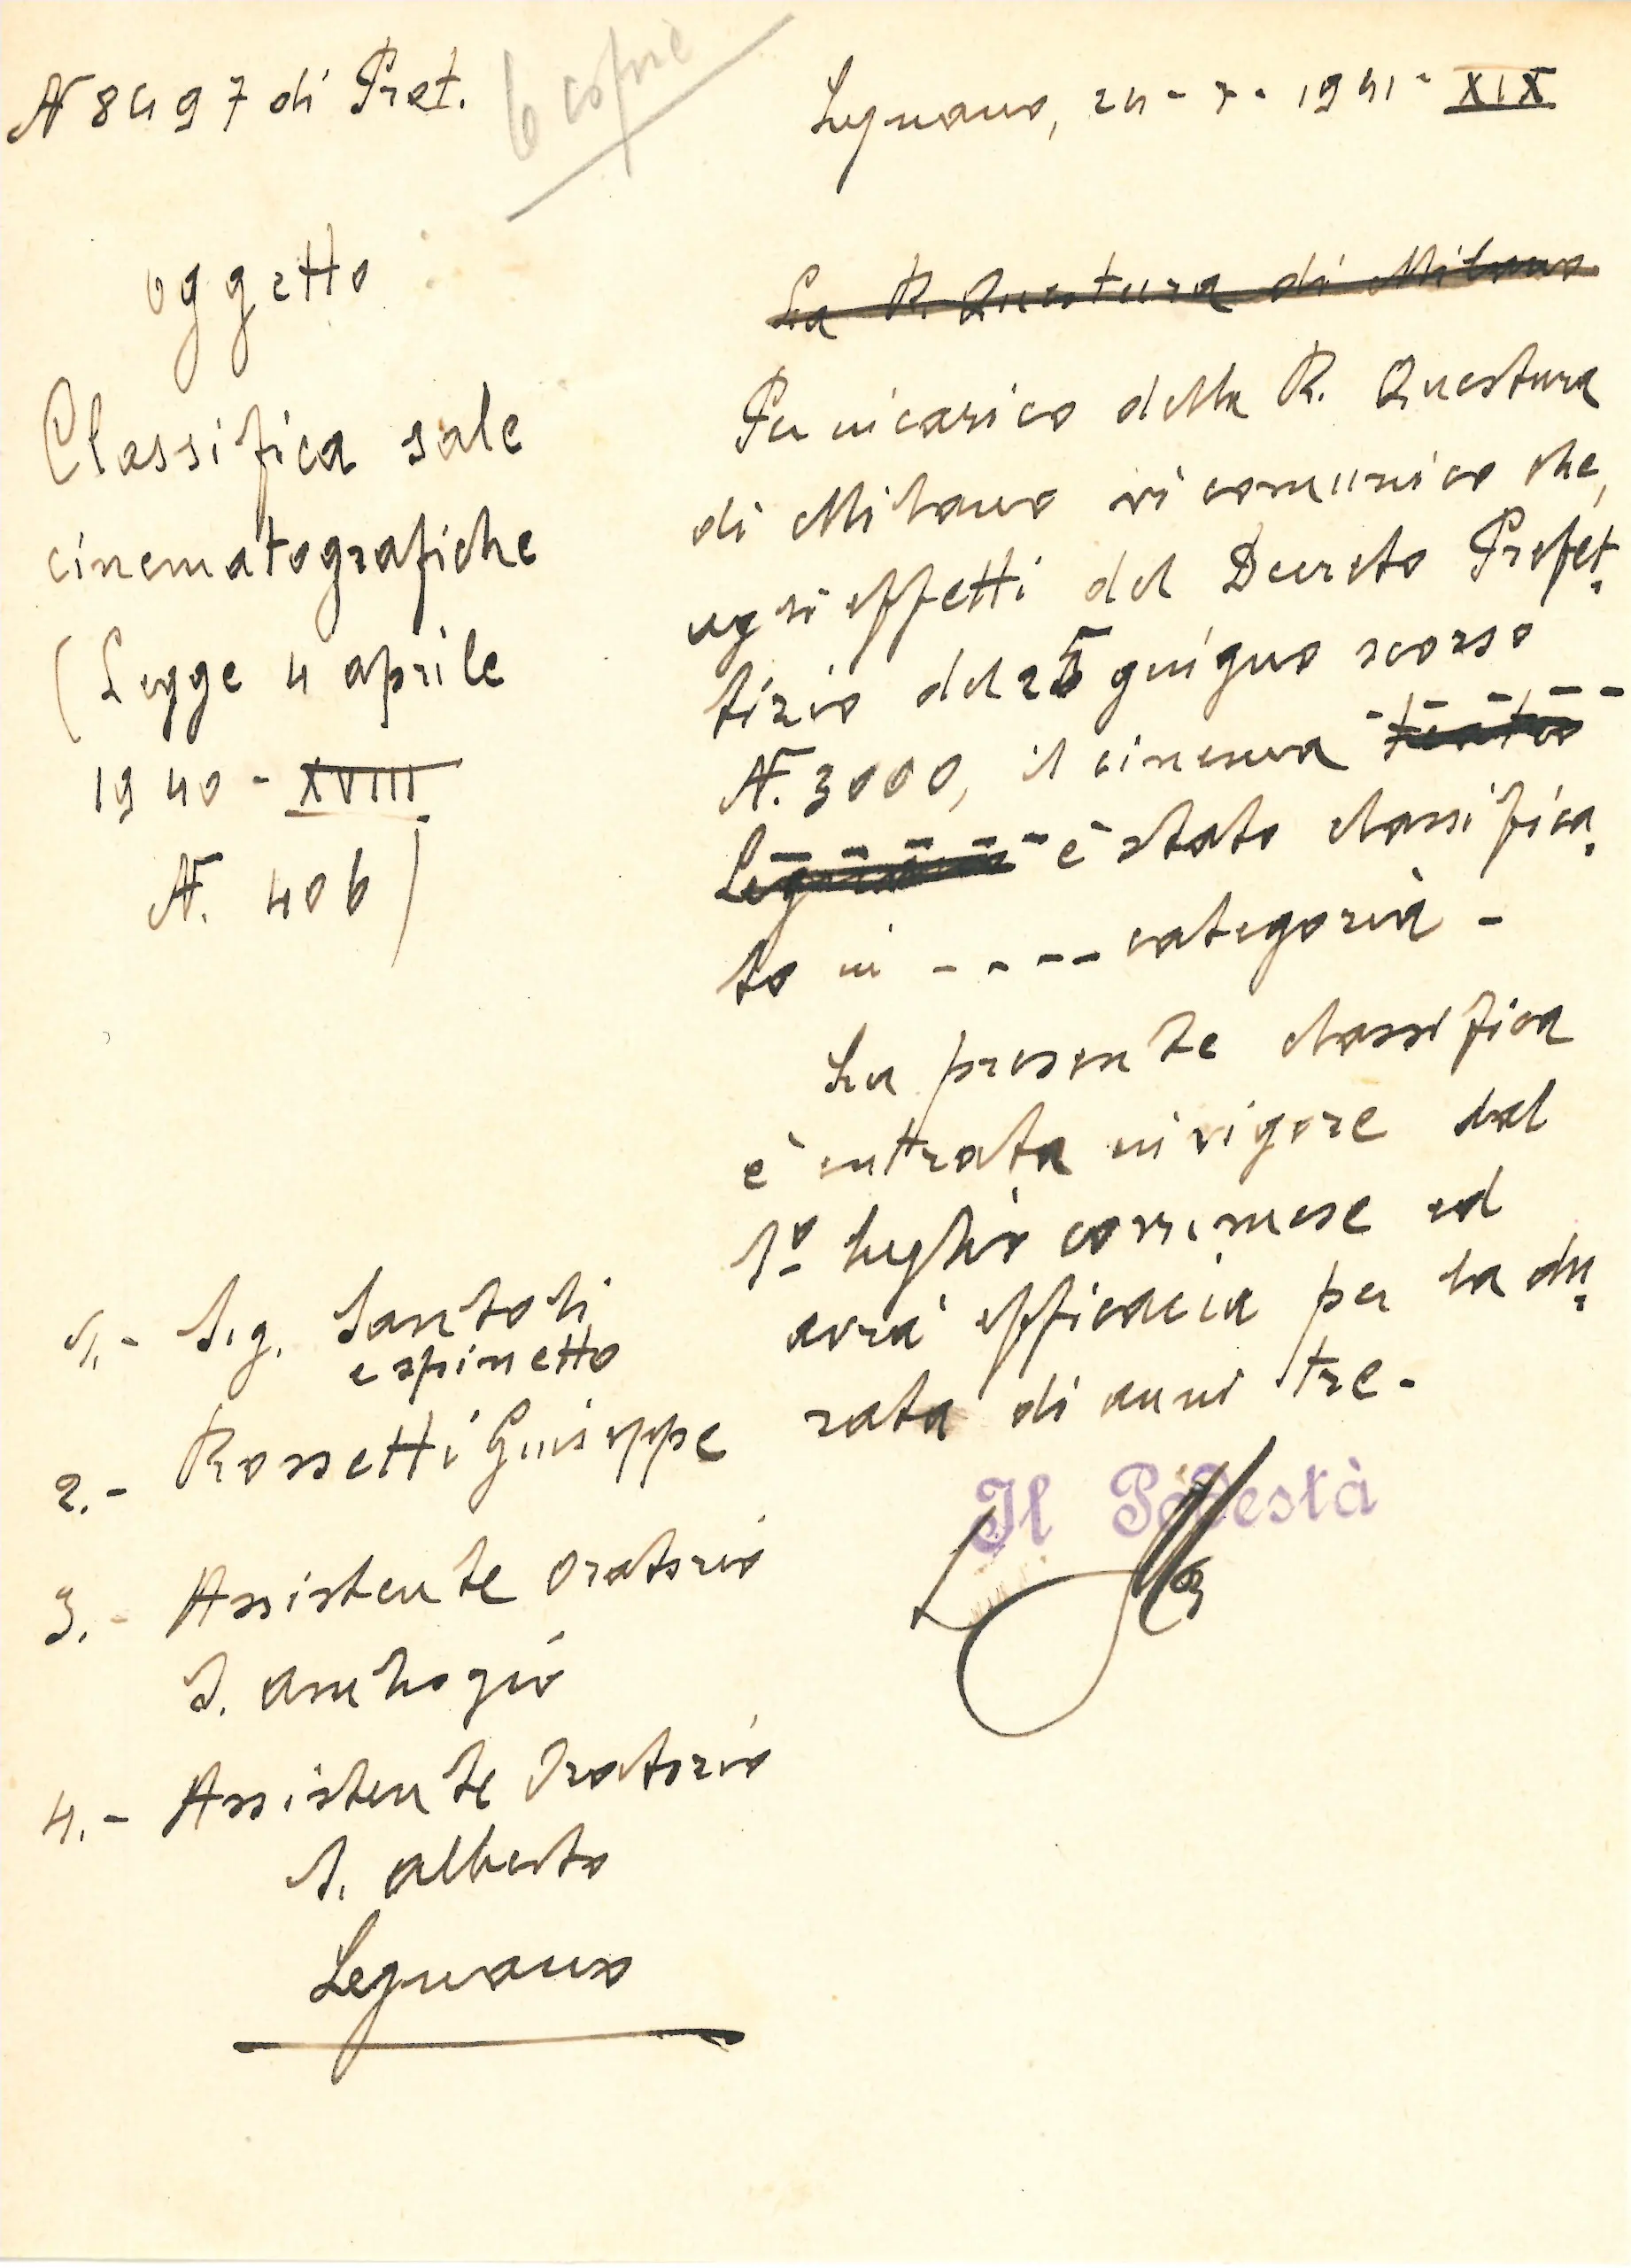 N 8497 di Prot.
6 copie
Legnano, 24-7-1941-XIX
oggetto
Classifica sale
cinematografiche
(Legge 4 aprile
1940-XVIII
N. 406)
La R. Questura di Milano
Per incarico della R. Questura
di Milano vi comunico che,
agli effetti del Decreto Prefet-
tizio del 25 giugno scorso
N. 3000, il cinema teatro - - - -
Legnano - - - - - è stato classifica-
to in - - - - categoria -
La presente classifica
è entrata in vigore dal
1º luglio corr. mese ed
avrà efficacia per la du-
rata di anni tre.
Il Podestà
1.- Sig. Santoli
e spinetto
2.- Rossetti Giuseppe
3.- Assistente Oratorio
S. ambrogio
4.- Assistente Oratorio
S. alberto
Legnano